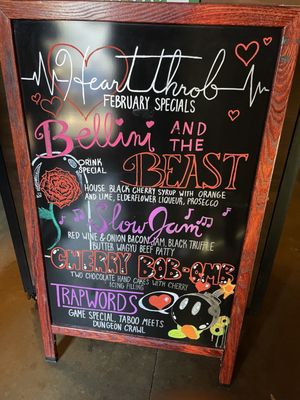 Heart throb
FEBRUARY SPECIALS
Bellini AND THE
BEAST
DRINK
SPECIAL
HOUSE BLACK CHERRY SYRUP WITH ORANGE
AND LIME, ELDERFLOWER LIQUEUR, PROSECCO
Slow Jam
RED WINE & ONION BACON JAM, BLACK TRUFFLE
BUTTER WAGYU BEEF PATTY
CHERRY BOB-OMB
TWO CHOCOLATE HAND CAKES WITH CHERRY
ICING FILLING
TRAPWORDS
GAME SPECIAL, TABOO MEETS
DUNGEON CRAWL